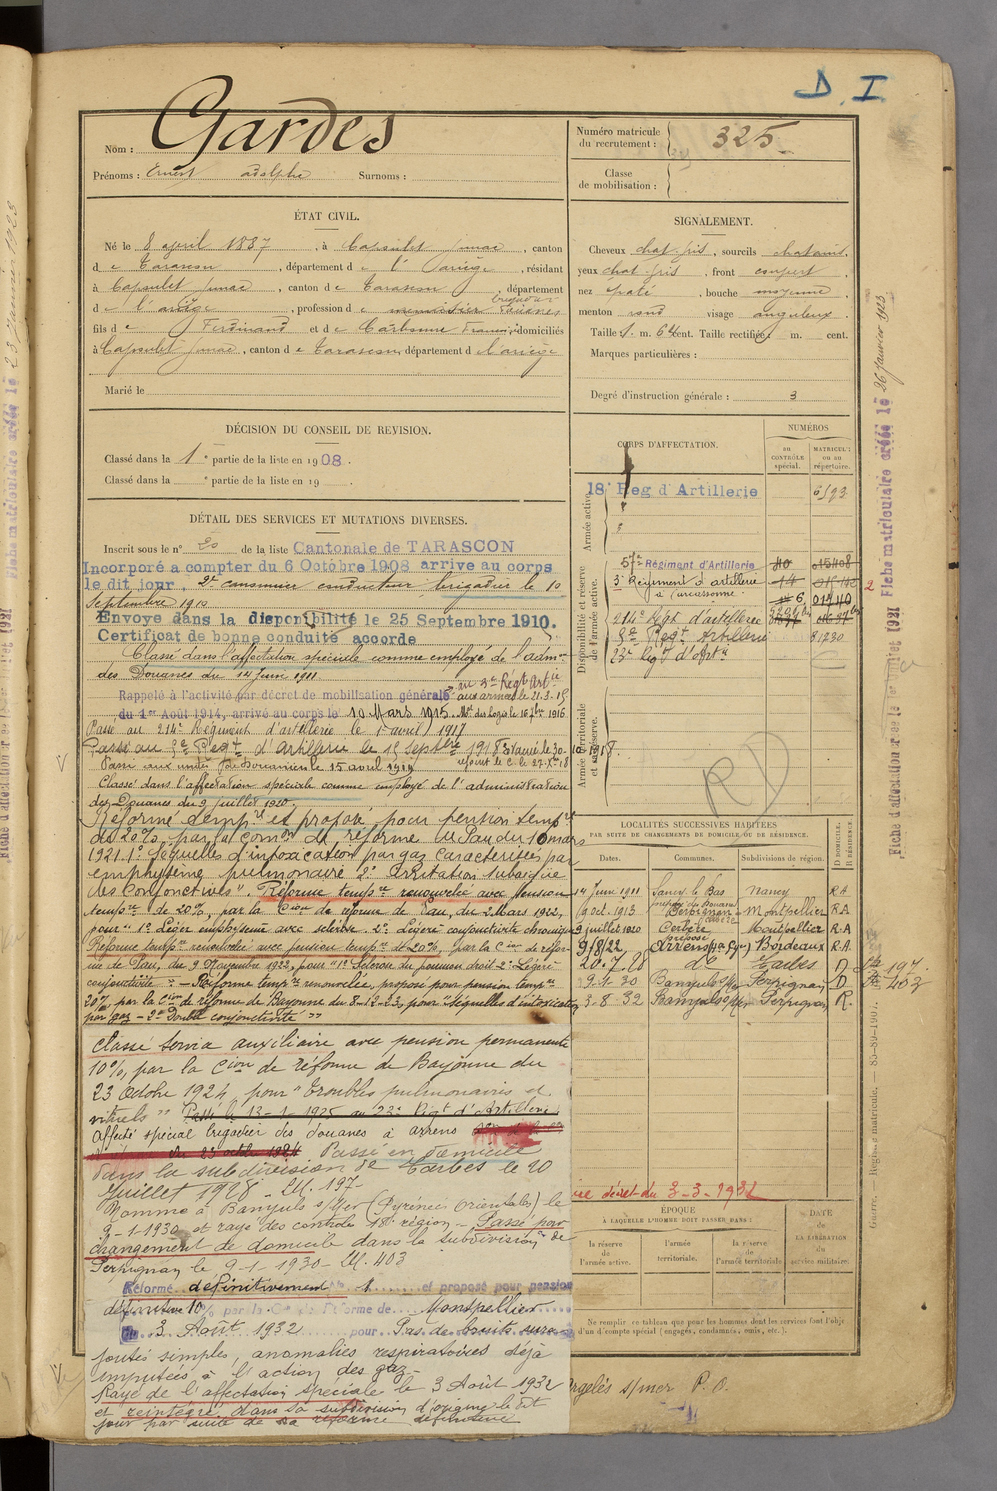 D. I
Nom : Gardes
Prénoms : Ernest adolphe Surnoms :
Numéro matricule du recrutement : 325
Classe de mobilisation :
ÉTAT CIVIL.
Né le 8 april 1887, à Capoulet Junac, canton
de Tarascon, département de l'Ariège, résidant
à Capoulet Junac, canton de Tarascon, département
de l'ariège, profession de brigadier douanes
fils de Ferdinand et de Carbonne Francise domiciliés
à Capoulet Junac, canton de Tarascon, département de l'ariège
Marié le
SIGNALEMENT.
Cheveux chat. gris, sourcils chatains,
yeux chat. gris, front couvert,
nez , bouche moyenne,
menton rond visage anguleux.
Taille 1 m. 64 cent. Taille rectifiée m. cent.
Marques particulières :
Degré d'instruction générale : 3
DÉCISION DU CONSEIL DE REVISION.
Classé dans la 1e partie de la liste en 1908.
Classé dans la e partie de la liste en 19
DÉTAIL DES SERVICES ET MUTATIONS DIVERSES.
Inscrit sous le n° 20 de la liste Cantonale de TARASCON
Incorporé a compter du 6 Octobre 1908 arrive au corps
le dit jour, 2e canonnier conducteur, brigadier le 10
Septembre 1910
Envoye dans la disponibilité le 25 Septembre 1910.
Certificat de bonne conduite accorde
Classé dans l'affectation spéciale comme employé de l'admon
des Douanes du 14 Juin 1911
Rappelé à l'activité par décret de mobilisation générale au 3e Regt Artie
du 1er Août 1914, arrivé au corps le 10 Mars 1915. aux armées le 21.3.15
Mal des logis le 16 7bre 1916
Passé au 214e Régiment d'artillerie le 1er avril 1917
Passé au 3e Regt d'Artillerie le 15 septbre 1918 Evacué le 30-10-1918.
rejoint le C. le 27.Xbre 18
Passé aux unités de Douaniers le 15 avril 1919
Classé dans l'affectation spéciale comme employé de l'administration
des Douanes du 9 juillet 1920.
Réformé tempre et proposé pour pension tempre
de 20% par la comon de réforme de Pau du 10 mars
1921. 1° Séquelles d'intoxication par gaz caractérisées par
emphysème pulmonaire 2° Irritation subaigüe
des conjonctives". Réforme tempre renouvelée avec pension
tempre de 20%, par la Cion de réforme de Pau, du 2 Mars 1922,
pour "1° Léger emphysème avec sclérose. 2° Légère conjonctivite chronique
Réforme tempre renouvelée avec pension tempre de 20%, par la Cion de réfor-
me de Pau, du 9 Novembre 1922, pour "1° Sclérose du poumon droit 2° Légère
conjonctivite". Réforme tempre renouvelée, propose pour pension tempre
20%, par la Cion de réforme de Bayonne du 8-12-23, pour "Séquelles d'intoxication
par gaz - 2° Double conjonctivite"
Classé Service auxiliaire avec pension permanente
10%, par la Cion de réforme de Bayonne du
23 Octobre 1924, pour "troubles pulmonaires et
" Passé le 13-1-1925 au 23e Regt d'Artillerie
affecté spécial brigadier des douanes à arrens
du 23 octob 1924 Passé en domicile
dans la subdivision de Tarbes le 20
Juillet 1928 - LM. 197-
Nommé à Banyuls s/Mer (Pyrénées Orientales), le
9-1-1930 et rayé des contrôles 18e région - Passé pour
changement de domicile dans la subdivision de
Perpignan le 9-1-1930- LM. 403
Réformé definitivement No 1 et proposé pour pension
définitive 10% par la Con de Réforme de Montpellier
Du 3 Août 1932 pour Pas de bruits sura-
joutés simples, anomalies respiratoires déjà
imputées à l'action des gaz-
Rayé de l'affectation spéciale le 3 Août 1932
et réintégré dans sa subdivision d'origine le dit
jour par suite de sa réforme définitive
CORPS D'AFFECTATION.
NUMÉROS
au CONTRÔLE spécial.
MATRICULE ou au répertoire.
Armée active.
18e Reg d'Artillerie 6593
Disponibilité et réserve de l'armée active.
57e Régiment d'Artillerie 40 15408
3e Régiment d'artillerie à Carcassonne
6 01740
214e Regt d'artillerie
3e Regt Artillerie 81230
23e Regt d'Artie
Armée territoriale et sa réserve.
RD
LOCALITÉS SUCCESSIVES HABITÉES
PAR SUITE DE CHANGEMENTS DE DOMICILE OU DE RÉSIDENCE.
Dates. Communes. Subdivisions de région. D DOMICILE. R RÉSIDENCE.
14 Juin 1911 Sancy le Bas Nancy RA
9 oct. 1913 Perpignan Montpellier RA
9 juillet 1920 Cerbère Montpellier R.A
9/8/22 Arrens (Htes Pyr) Bordeaux R.A.
20.7.28 do Tarbes D 197
9.1.30 Banyuls s/Mer Perpignan D 403
3-8 32 Banyuls s/Mer Perpignan R.
décret du 3-3-1932
ÉPOQUE
À LAQUELLE L'HOMME DOIT PASSER DANS :
la réserve de l'armée active.
l'armée territoriale.
la réserve de l'armée territoriale
DATE de LA LIBÉRATION du service militaire.
Ne remplir ce tableau que pour les hommes dont les services font l'objet
d'un compte spécial (engagés, condamnés, omis, etc.).
Argelès s/mer P. O.
Fiche matriculaire créée le 26 Janvier 1923
Guerre. — Registre matricule. — 85-80-1907.
Fiche matriculaire créée le 23 Janvier 1923